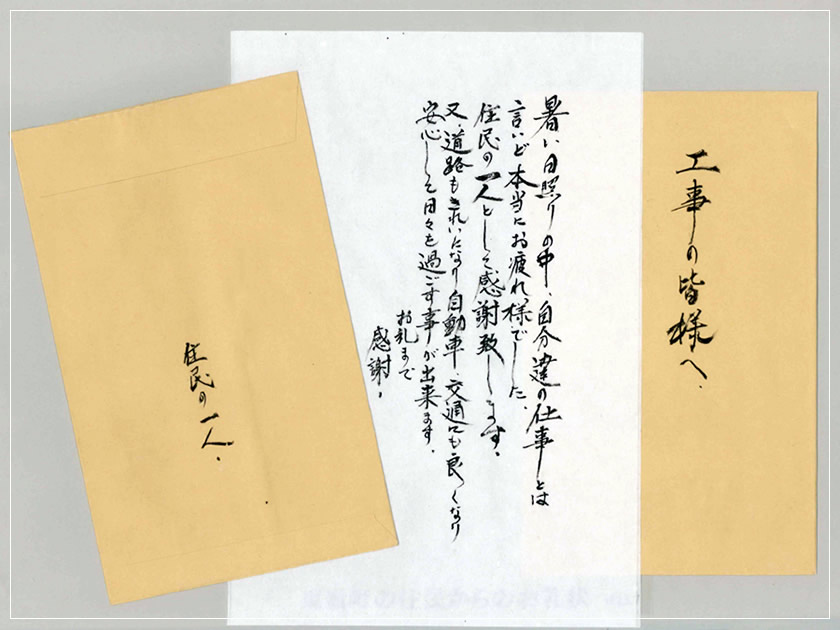 工事の皆様へ.
暑い日照りの中、自分達の仕事とは
言いど本当にお疲れ様でした、
住民の一人として感謝致します。
又、道路もきれいになり自動車、交通にも良くなり
安心して日々を過ごす事が出来ます。
お礼まで
感謝。
住民の一人.